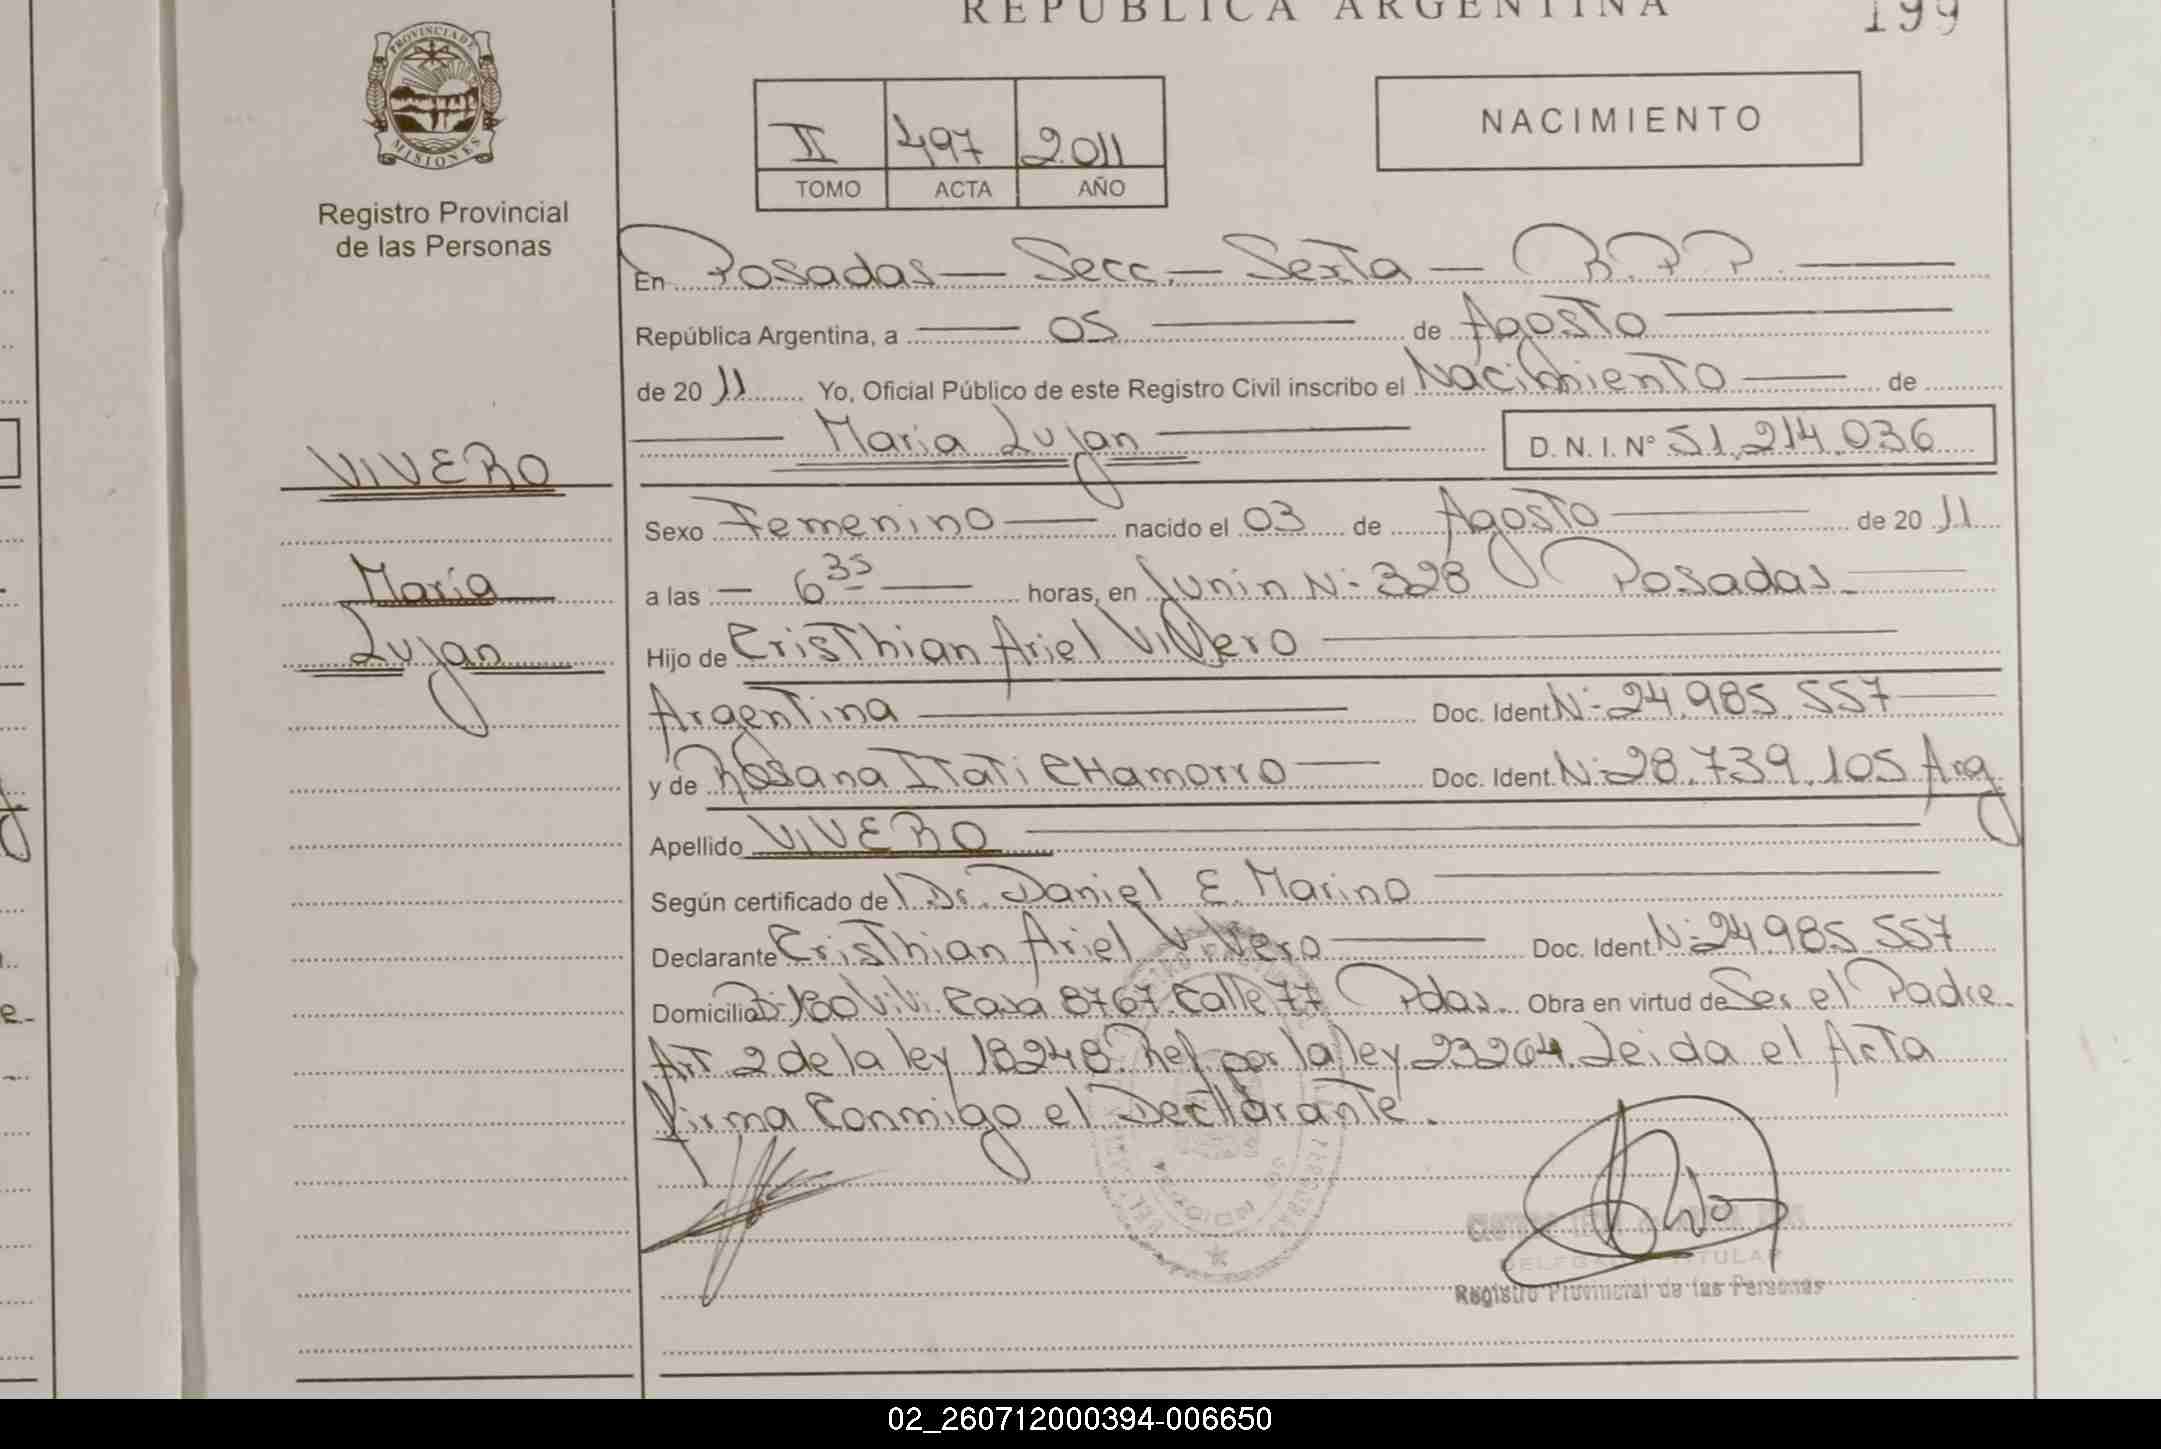 REPUBLICA ARGENTINA
199
PROVINCIA DE
MISIONES
Registro Provincial
de las Personas
II 497 2.011
TOMO ACTA AÑO
NACIMIENTO
En Posadas — Secc. — Sexta — R.P.P.
República Argentina, a 05 de Agosto
de 20 11 Yo, Oficial Público de este Registro Civil inscribo el Nacimiento de
Maria Lujan D. N. I. N° 51.214.036
VIVERO
María
Lujan
Sexo Femenino nacido el 03 de Agosto de 20 11
a las — 6 35 horas, en Junin N: 328 Posadas
Hijo de Cristhian Ariel Vivero
Argentina Doc. Ident. N: 24.985.557
y de Rosana Itati CHamorro Doc. Ident. N: 28.739.105 Arg
Apellido VIVERO
Según certificado de Dr. Daniel E. Marino
Declarante Cristhian Ariel Vivero Doc. Ident. N: 24.985.557
Domicilio B: 180 Vivi. Casa 8767 Calle 77 Pdas. Obra en virtud de Ser el Padre.
Art 2 de la ley 18248 Ref. por la ley 23264. Leida el Acta
firma Conmigo el Declarante.
DELEGADO TITULAR
Registro Provincial de las Personas
02_260712000394-006650